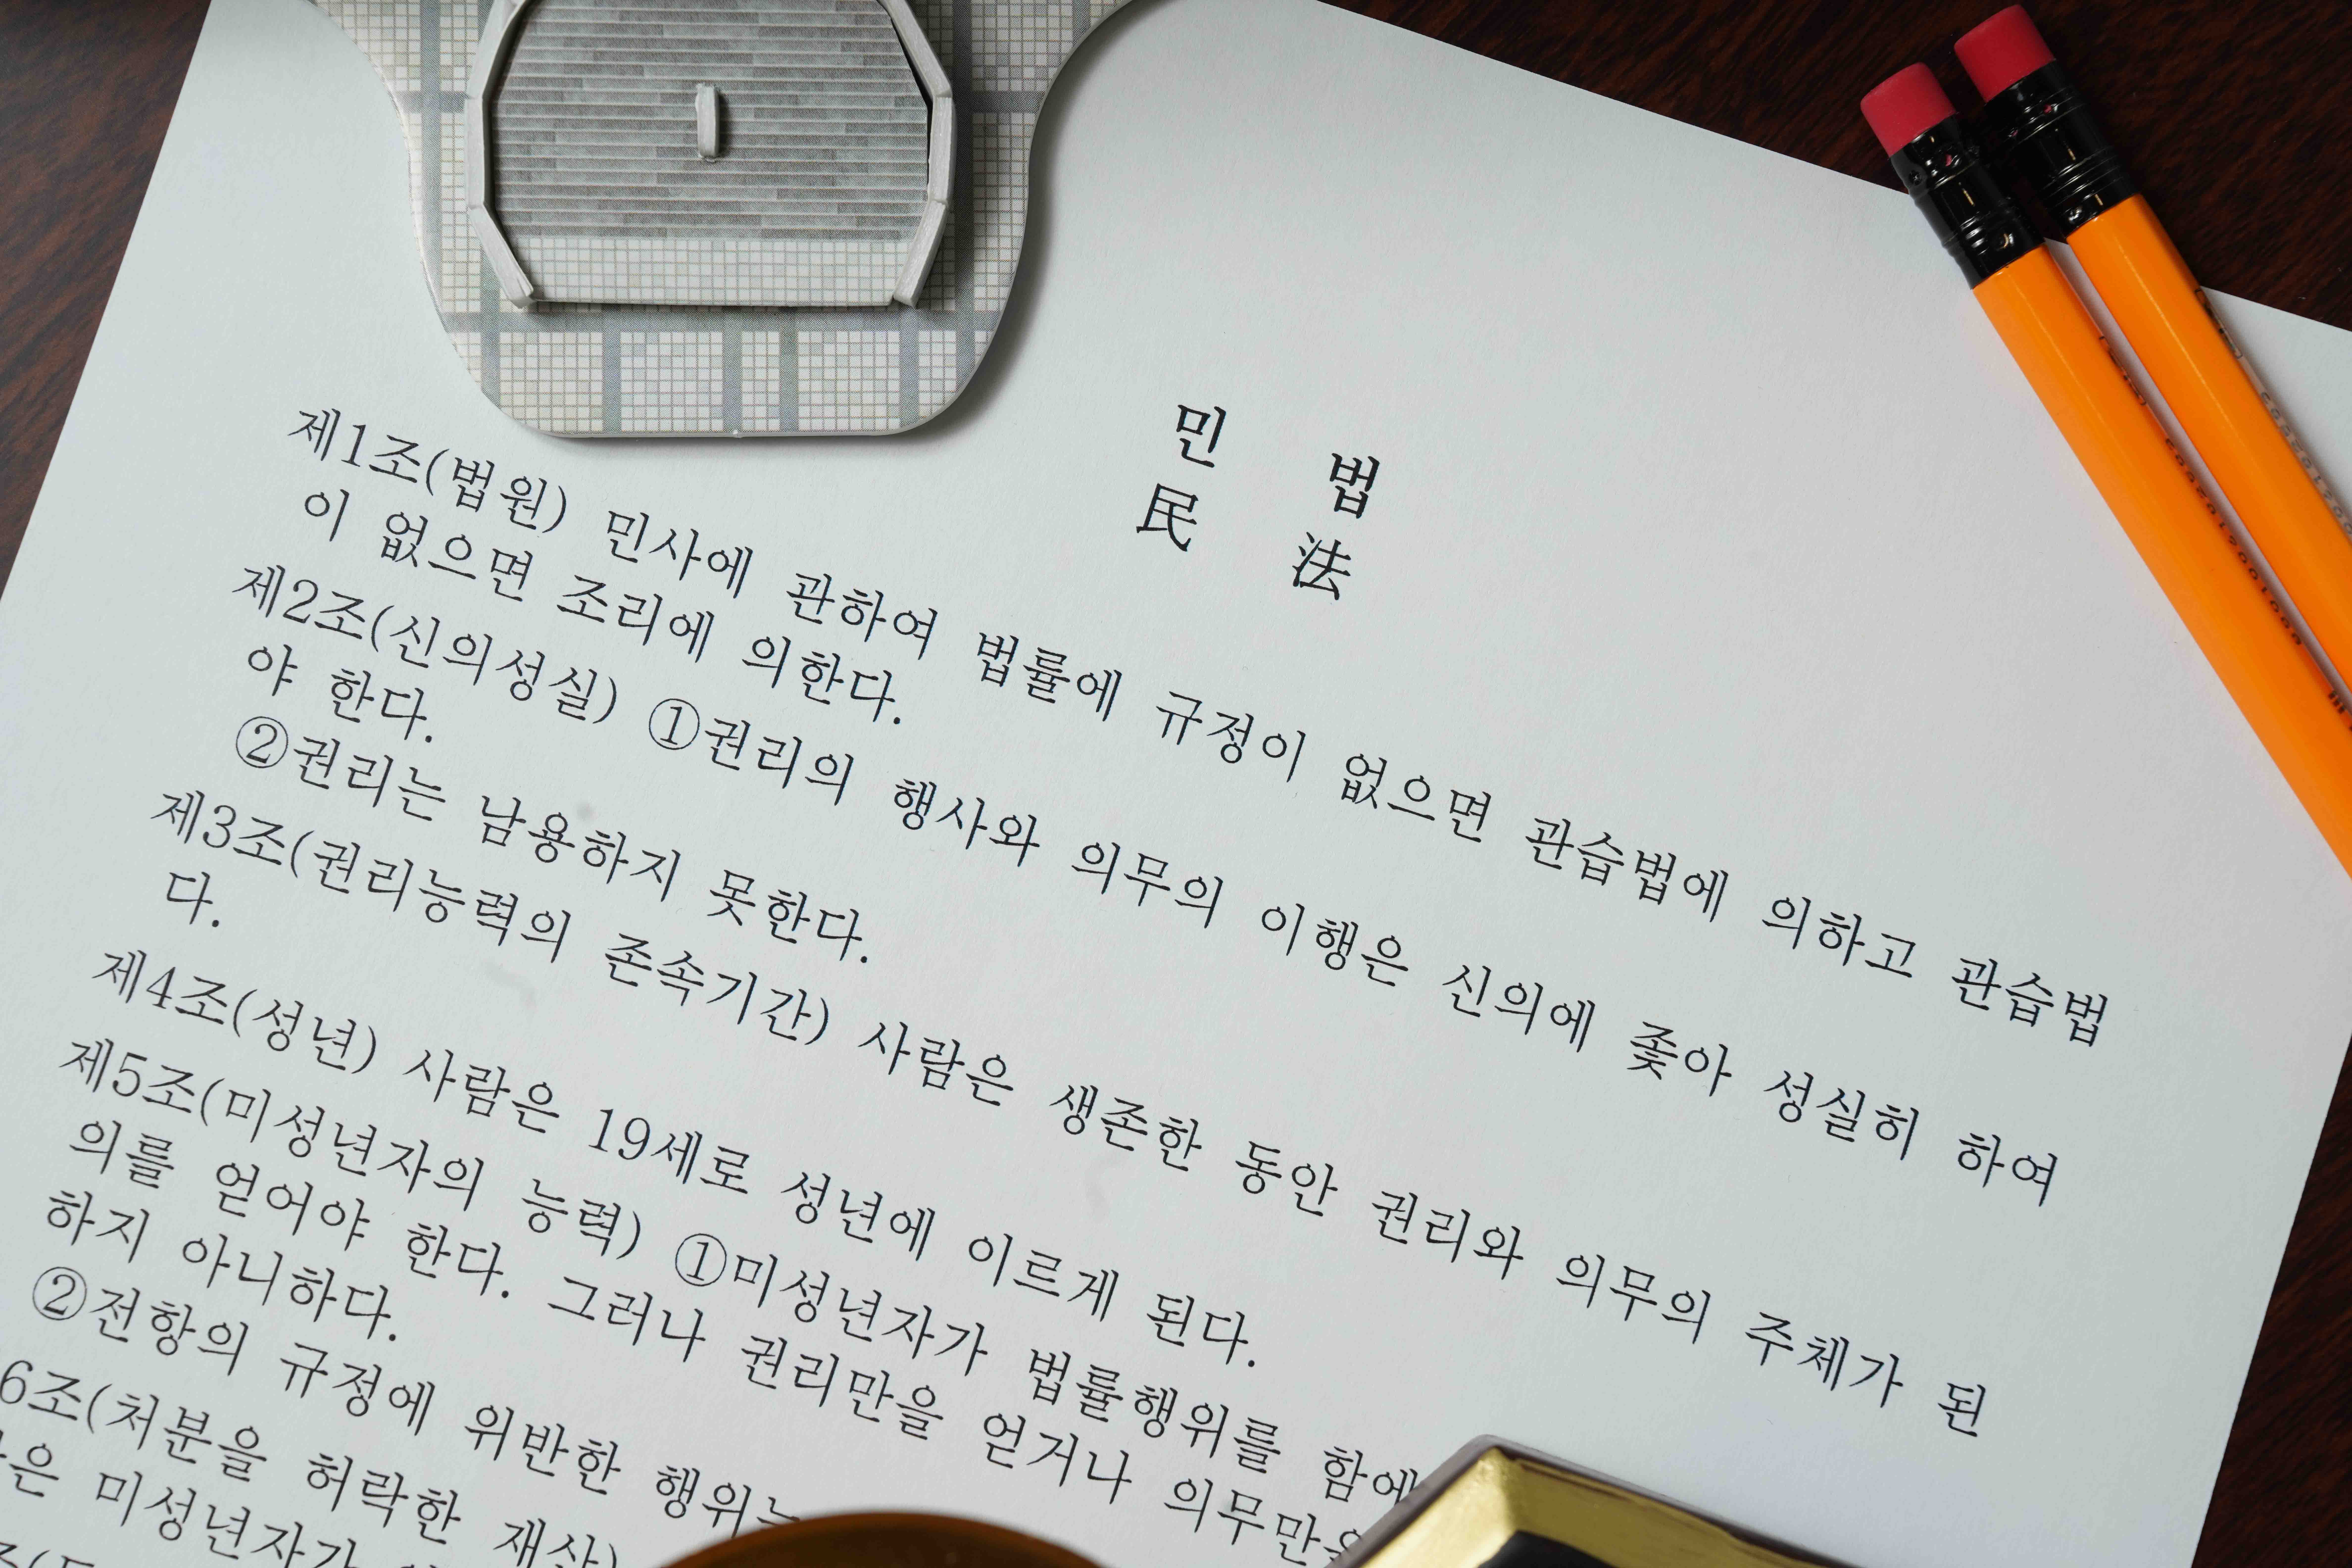 민 법
民 法
제1조(법원) 민사에 관하여 법률에 규정이 없으면 관습법에 의하고 관습법
이 없으면 조리에 의한다.
제2조(신의성실) ①권리의 행사와 의무의 이행은 신의에 좇아 성실히 하여
야 한다.
②권리는 남용하지 못한다.
제3조(권리능력의 존속기간) 사람은 생존한 동안 권리와 의무의 주체가 된
다.
제4조(성년) 사람은 19세로 성년에 이르게 된다.
제5조(미성년자의 능력) ①미성년자가 법률행위를 함에
의를 얻어야 한다. 그러나 권리만을 얻거나 의무만을
하지 아니하다.
②전항의 규정에 위반한 행위는
6조(처분을 허락한 재산)
은 미성년자가